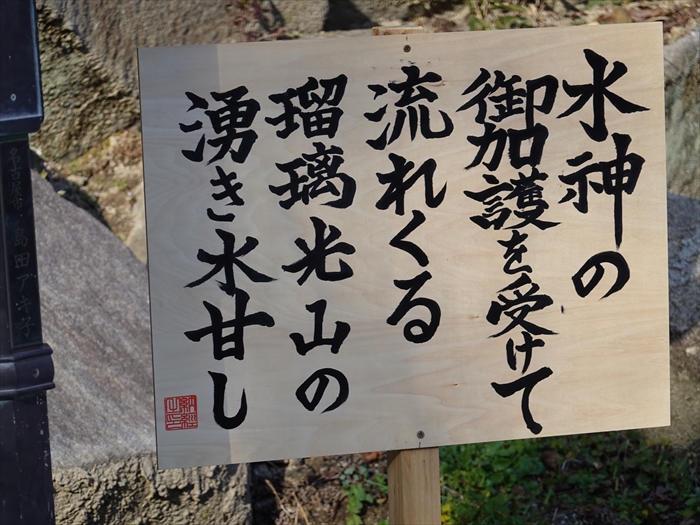 水神の
御加護を受けて
流れくる
瑠璃光山の
湧き水甘し
名古屋市 島田アキ子